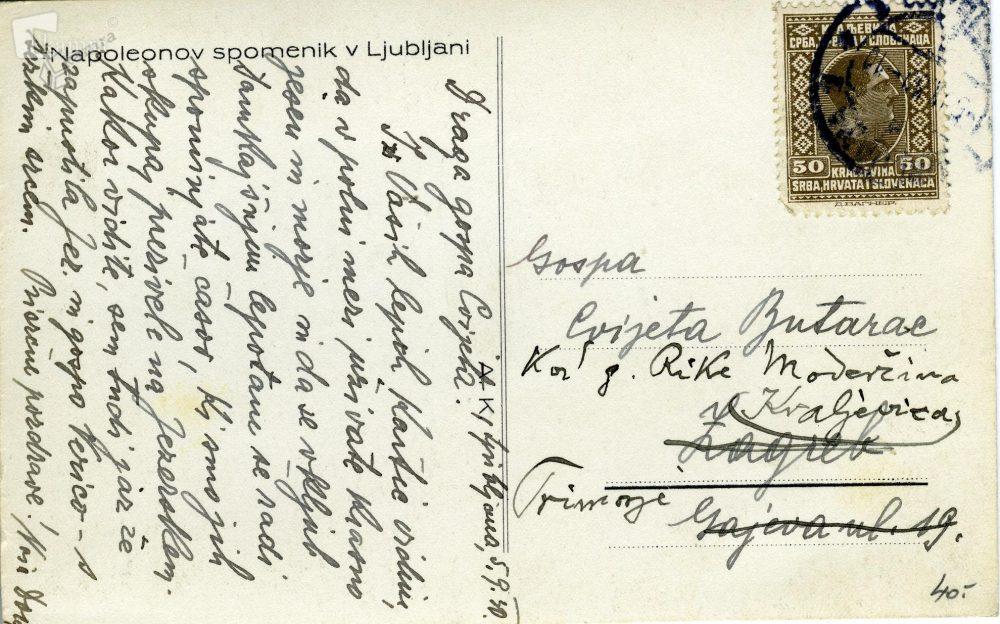 Napoleonov spomenik v Ljubljani
Draga gospa Cvijeta!
Iz Vaših lepih kartic vidim,
da v polni meri uživate krasno
jesen in morje in da se vkljub
tamkajšnjim lepotam še radi
spominjate časov, ki smo jih
skupaj preživele na Jezerskem.
Kakor vidite, sem tudi jaz že
zapustila Jez. in gospo Verico - s
težkim srcem. Prisrčne pozdrave!
A. K. Ljubljana, 5. 9.
КРАЉЕВИНА
СРБА, ХРВАТА И СЛОВЕНАЦА
50 50
KRALJEVINA
SRBA, HRVATA I SLOVENACA
Д. ВАГНЕР
Gospa
Cvijeta Butarac
Kod g. Rike Moderčina
Kraljevica,
Zagreb
Primorje
Gajeva ul. 19.
40.-